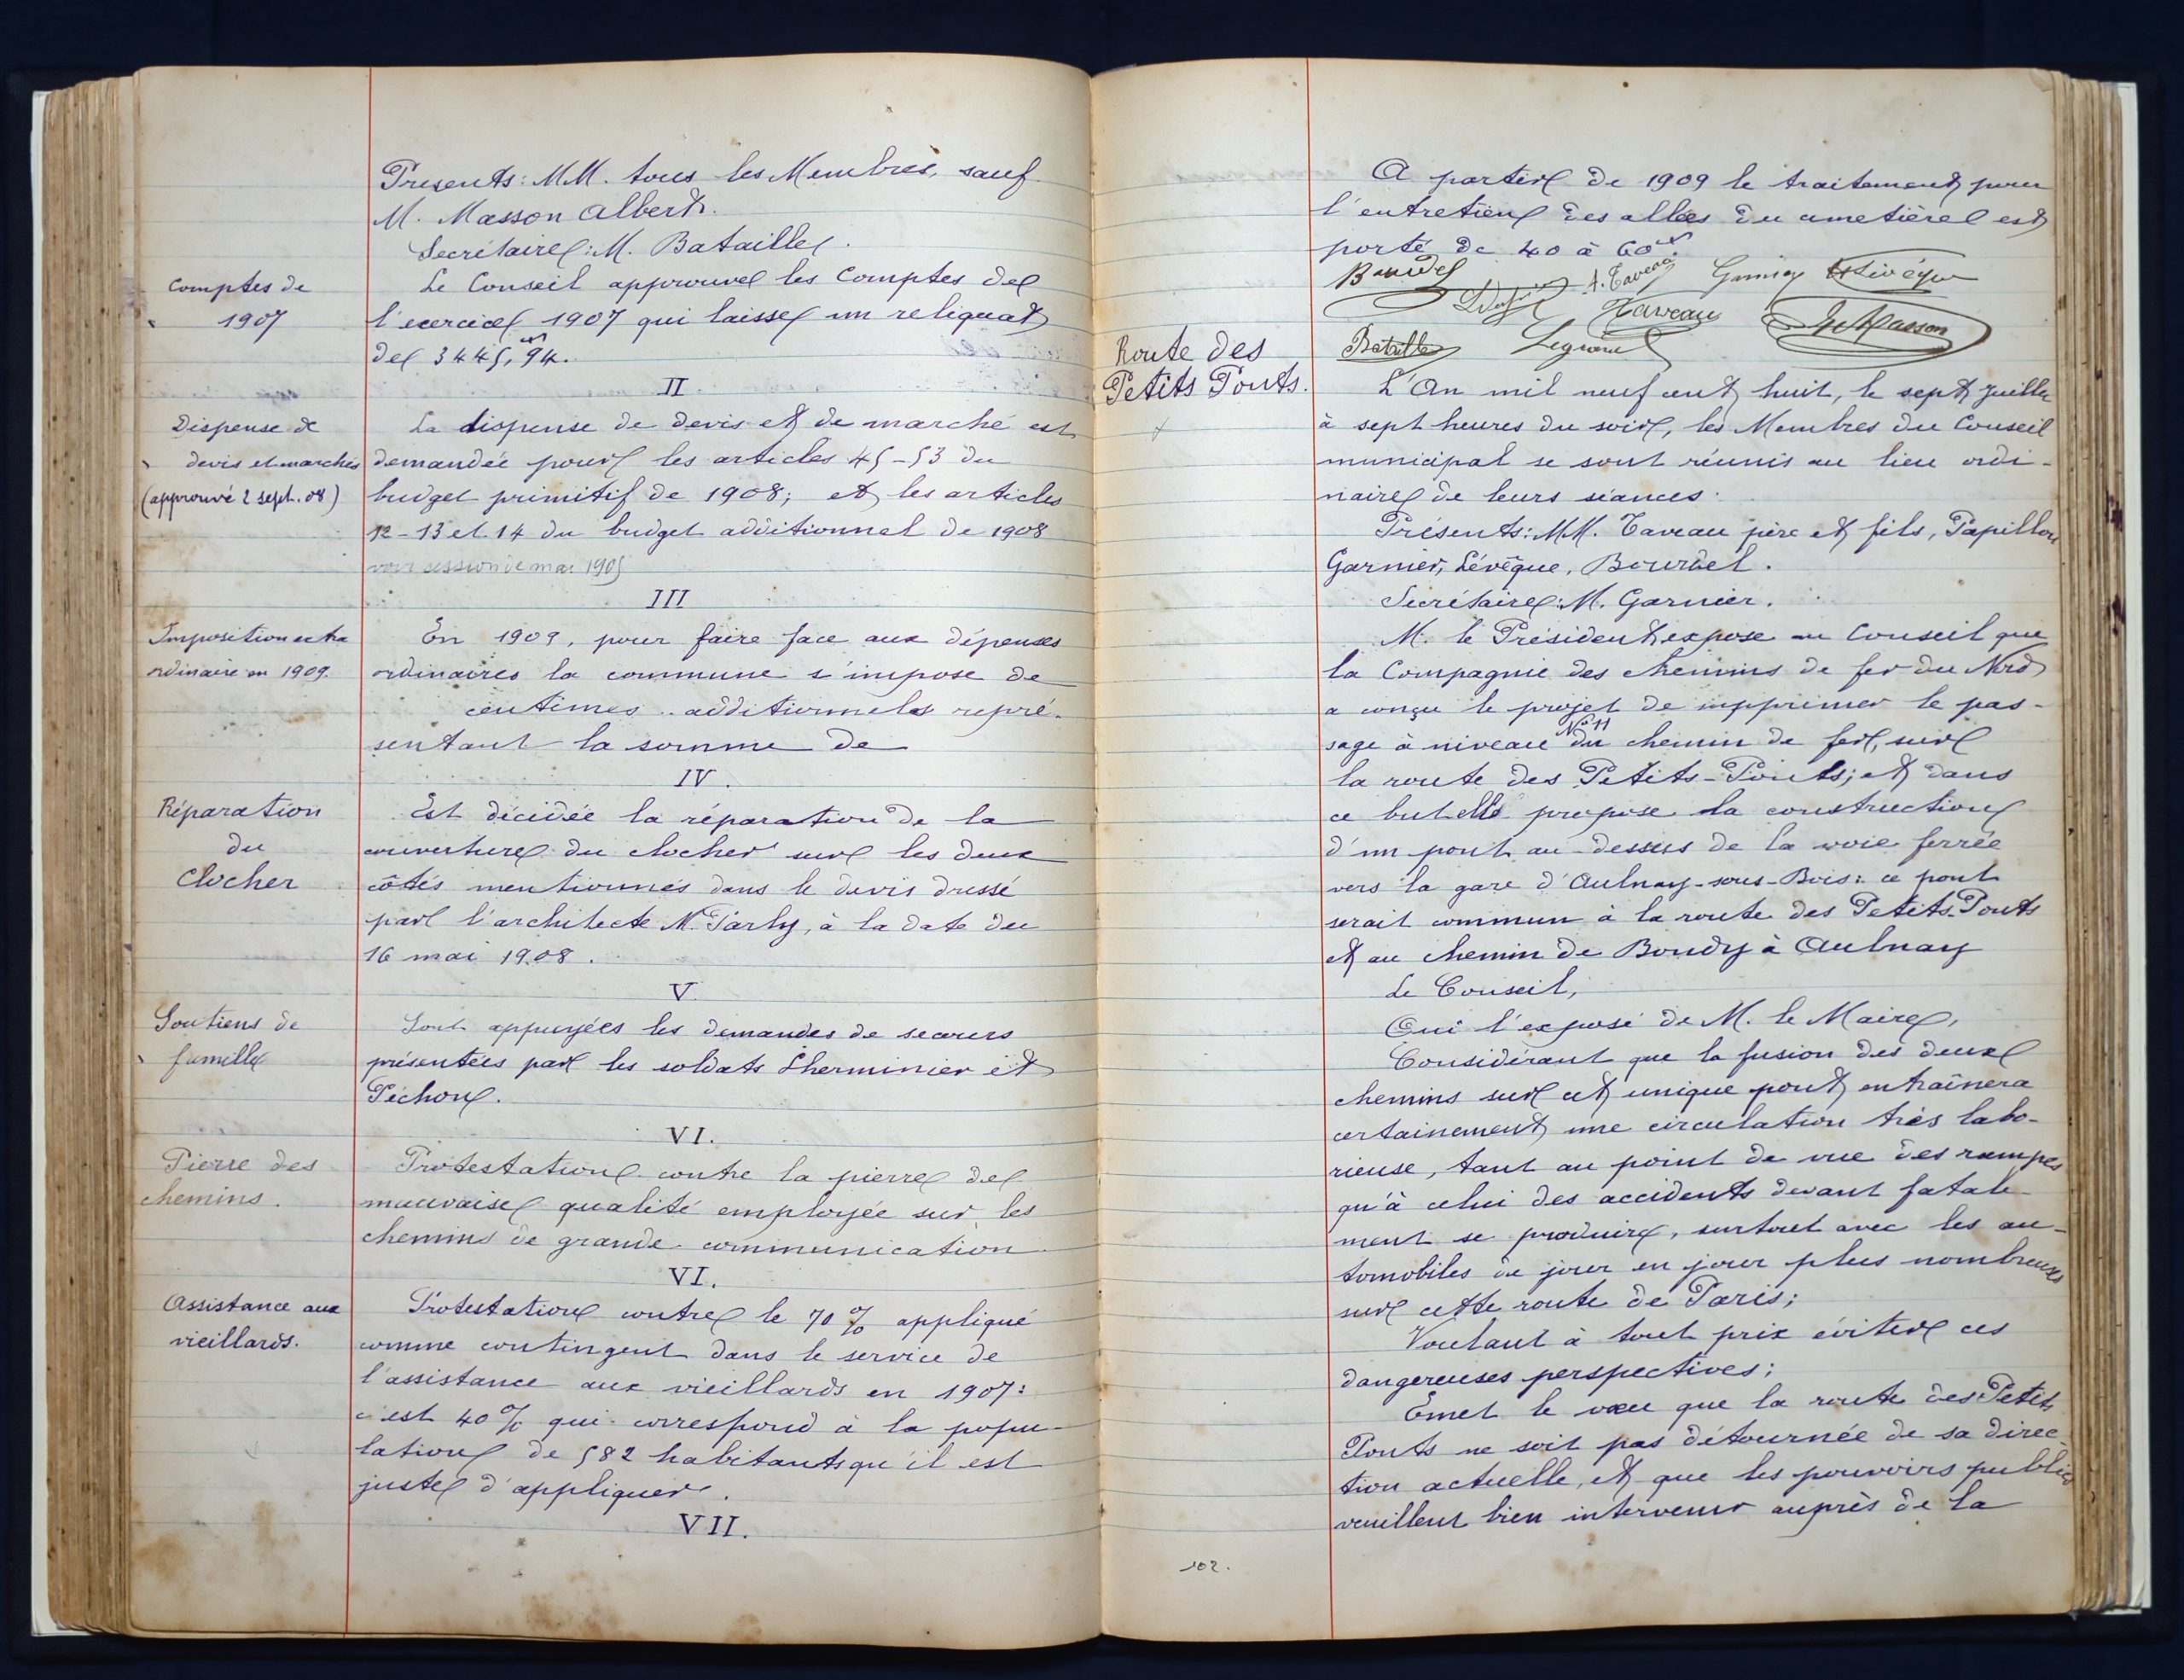 Présents: MM. tous les Membres, sauf
M. Masson Albert.
Secrétaire: M. Bataille.
Comptes de
1907
Le Conseil approuve les Comptes de
l'exercice 1907 qui laisse un reliquat
de 3445,94.
II
Dispense de
devis et marchés
(approuvé 2 sept. 08)
La dispense de devis et de marché est
demandée pour les articles 45-53 du
budget primitif de 1908; et les articles
12-13 et 14 du budget additionnel de 1908
voir session de mai 1905
III
Imposition extra
ordinaire en 1909.
En 1909, pour faire face aux dépenses
ordinaires la commune s'impose de
centimes additionnels repré-
sentant la somme de
IV.
Réparation
du
Clocher
Est décidée la réparation de la
couverture du clocher sur les deux
côtés mentionnés dans le devis dressé
par l'architecte M. Party, à la date du
16 mai 1908.
V.
Soutiens de
famille
Sont appuyées les demandes de secours
présentées par les soldats Lherminier et
Péchon.
VI.
Pierre des
chemins.
Protestation contre la pierre de
mauvaise qualité employée sur les
chemins de grande communication.
VI.
Assistance aux
vieillards.
Protestation contre le 70 % appliqué
comme contingent dans le service de
l'assistance aux vieillards en 1907:
c'est 40 % qui correspond à la popu-
lation de 582 habitants qu'il est
juste d'appliquer.
VII.
A partir de 1909 le traitement pour
l'entretien des allées du cimetière est
porté de 40 à 60
A. Taveau Garnier Lévêque
Taveau Masson
Bataille Legrand
Route des
Petits Ponts.
L'An mil neuf cent huit, le sept Juillet
à sept heures du soir, les Membres du Conseil
municipal se sont réunis au lieu ordi-
naire de leurs séances.
Présents: MM. Taveau père et fils, Papillon
Garnier, Lévêque, Bourdel.
Secrétaire: M. Garnier.
M. le Président expose au Conseil que
la Compagnie des chemins de fer du Nord
a conçu le projet de supprimer le pas-
sage à niveau N° 11 du chemin de fer, sur
la route des Petits-Ponts; et dans
ce but elle propose la construction
d'un pont au-dessus de la voie ferrée
vers la gare d'Aulnay-sous-Bois: ce pont
serait commun à la route des Petits-Ponts
et au chemin de Bondy à Aulnay
Le Conseil,
Ouï l'exposé de M. le Maire,
Considérant que la fusion des deux
chemins sur cet unique pont entraînera
certainement une circulation très labo-
rieuse, tant au point de vue des rampes
qu'à celui des accidents devant fatale-
ment se produire, surtout avec les au-
tomobiles de jour en jour plus nombreuses
sur cette route de Paris;
Voulant à tout prix éviter ces
dangereuses perspectives;
Emet le vœu que la route des Petits
Ponts ne soit pas détournée de sa direc-
tion actuelle, et que les pouvoirs publics
veuillent bien intervenir auprès de la
102.